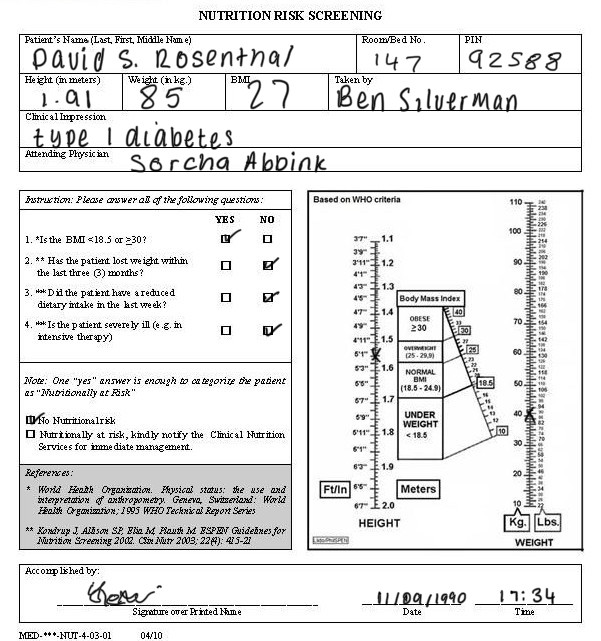 NUTRITION RISK SCREENING
Patient's Name (Last, First, Middle Name) Room/Bed No. PIN
David S. Rosenthal 147 92588
Height (in meters) Weight (in kg.) BMI Taken by
1.91 85 27 Ben Silverman
Clinical Impression
type 1 diabetes
Attending Physician Sorcha Abbink
Instruction: Please answer all of the following questions:
YES NO
1. *Is the BMI <18.5 or ≥30?
2. ** Has the patient lost weight within
the last three (3) months?
3. **Did the patient have a reduced
dietary intake in the last week?
4. **Is the patient severely ill (e.g. in
intensive therapy)
Note: One "yes" answer is enough to categorize the patient
as "Nutritionally at Risk"
No Nutritional risk
Nutritionally at risk, kindly notify the Clinical Nutrition
Services for immediate management.
References:
* World Health Organization. Physical status: the use and
interpretation of anthropometry. Geneva, Switzerland: World
Health Organization; 1995 WHO Technical Report Series
** Kondrup J, Allison SP, Elia M, Plauth M. ESPEN Guidelines for
Nutrition Screening 2002. Clin Nutr 2003; 22(4): 415-21
Based on WHO criteria
3'7" 1.1
3'9"
3'11" 1.2
4'1"
4'3" 1.3
4'5"
4'7" 1.4
4'9"
4'11" 1.5
5'1"
5'3" 1.6
5'5"
5'7" 1.7
5'9"
5'11" 1.8
6'1"
6'3" 1.9
6'5"
6'7" 2.0
Ft/In Meters
HEIGHT
Body Mass Index
OBESE
≥30
OVERWEIGHT
(25 - 29,9)
NORMAL
BMI
(18.5 - 24.9)
UNDER
WEIGHT
< 18.5
40
30
25
18.5
10
110
100
90
80
70
60
50
40
30
20
10
Kg. Lbs.
WEIGHT
Accomplished by:
11/09/1990 17:34
Signature over Printed Name Date Time
MED-***-NUT-4-03-01 04/10